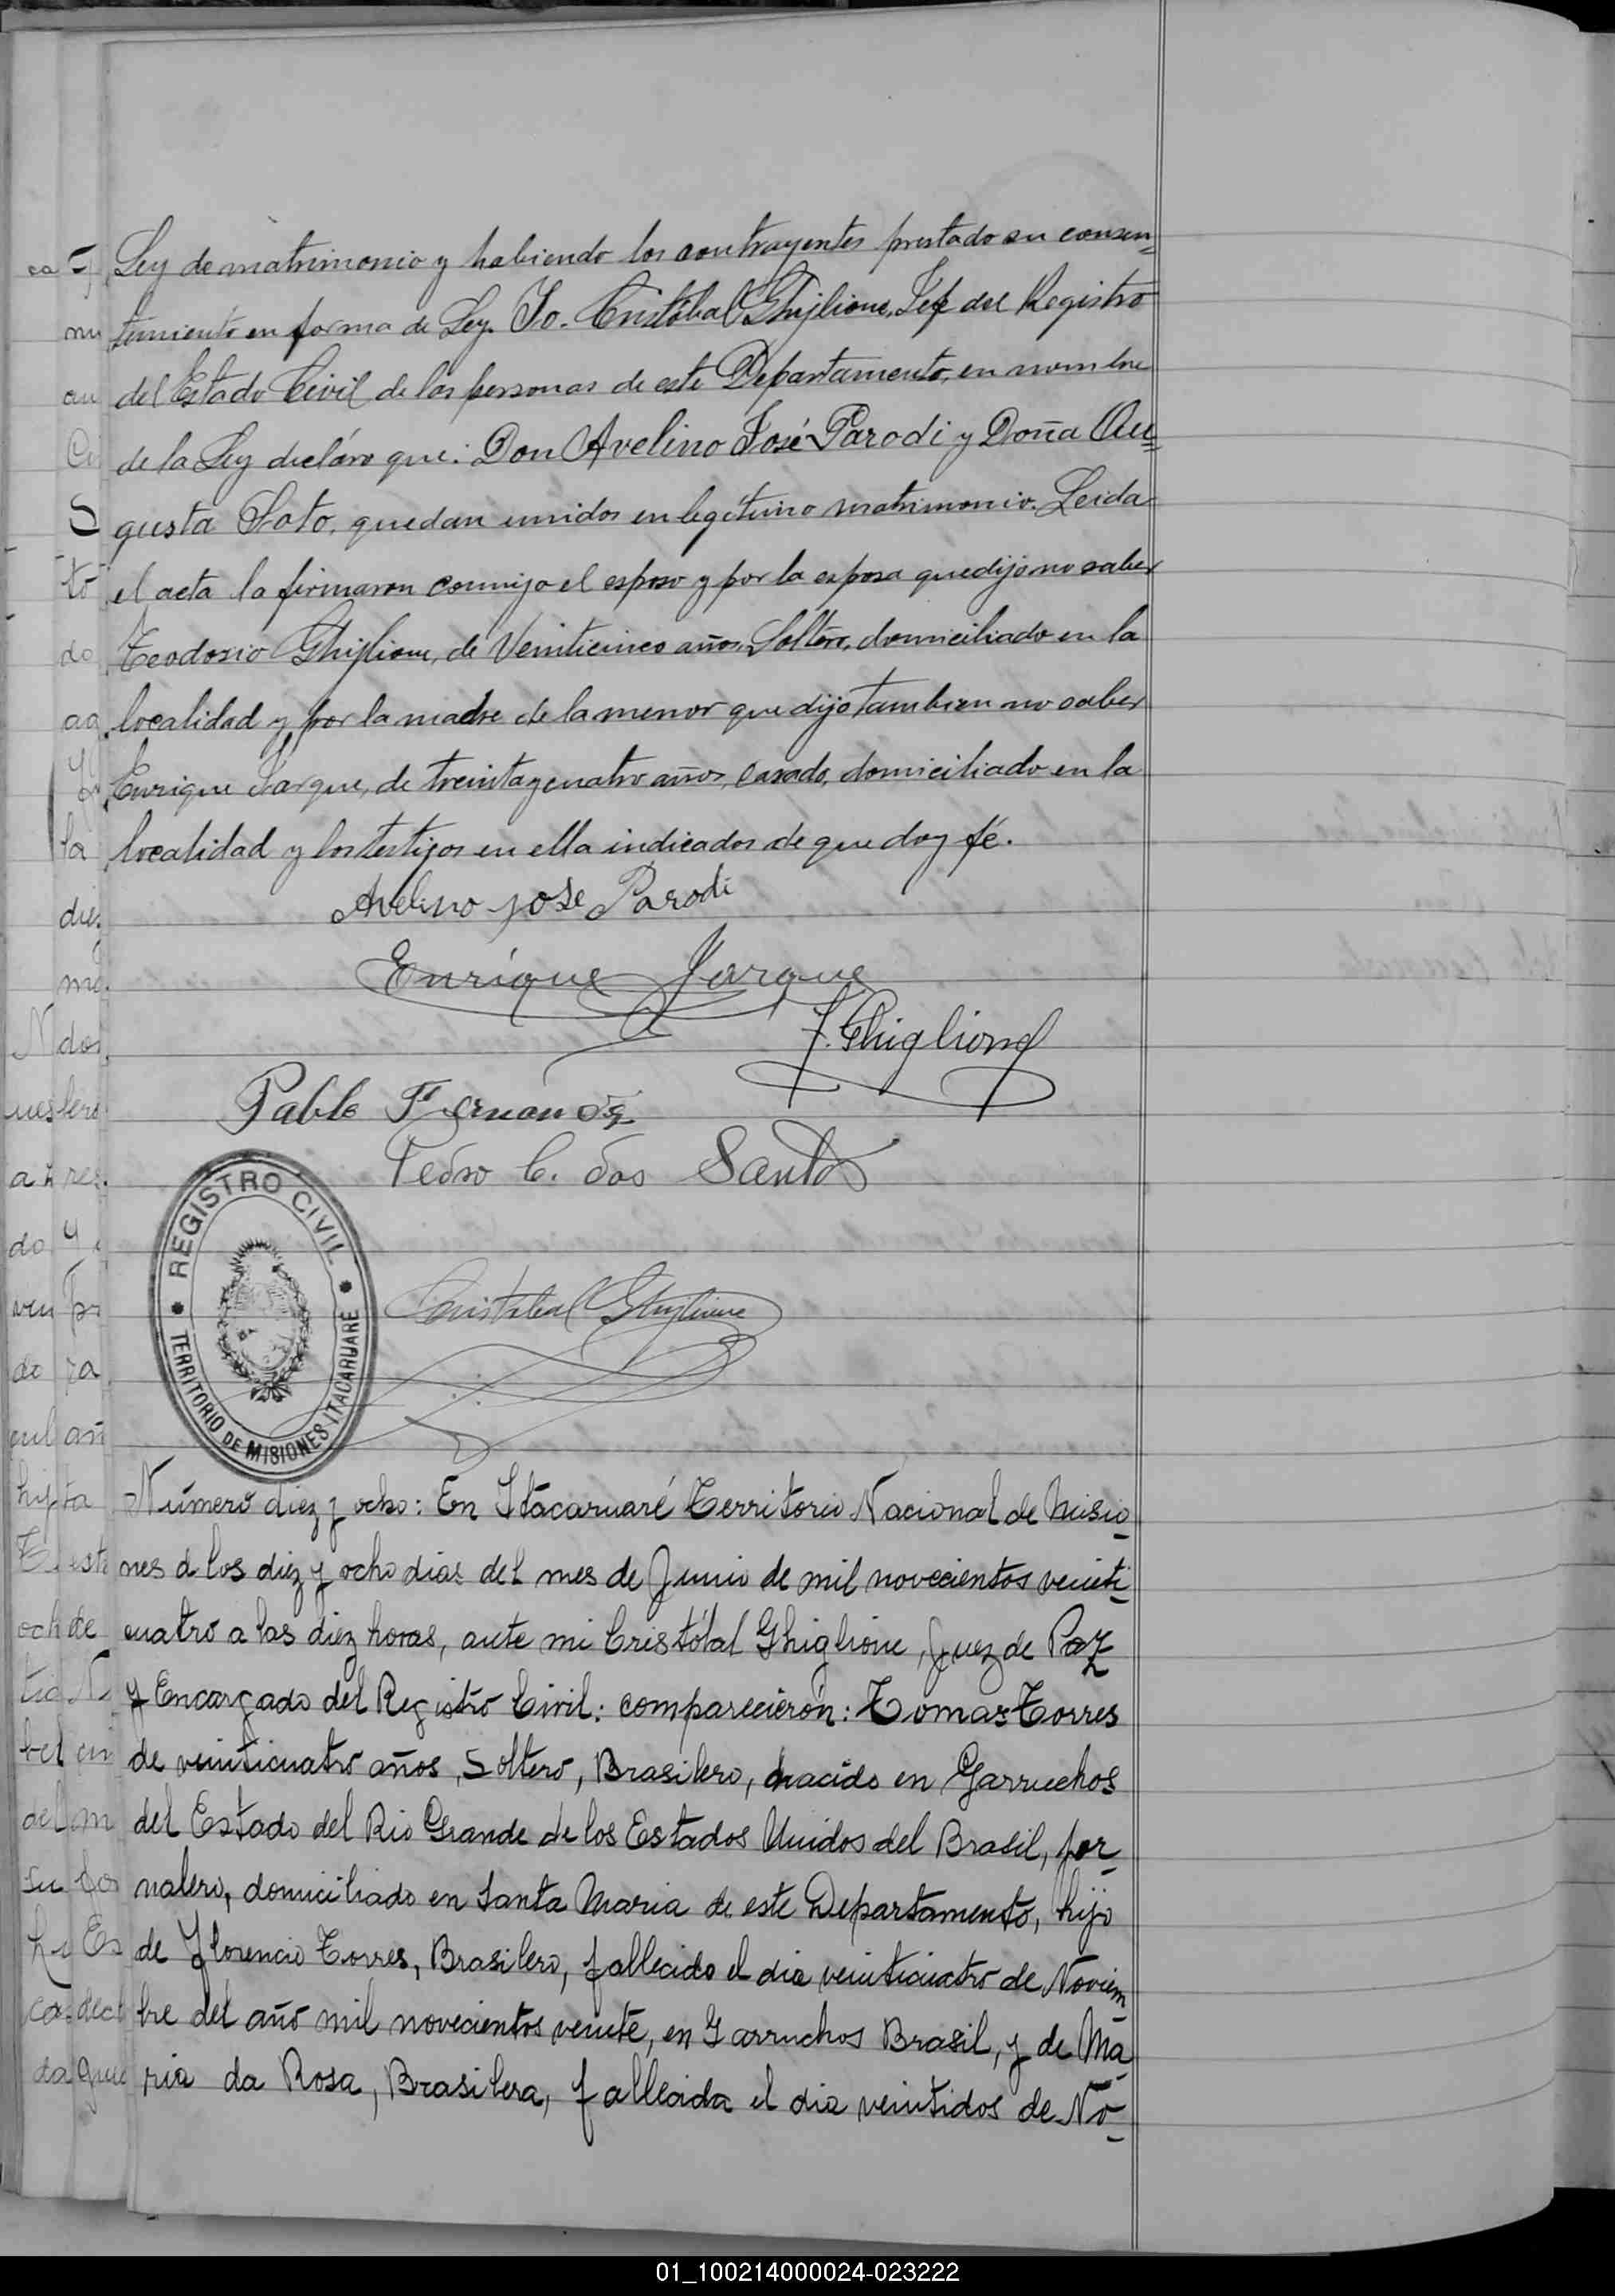 Ley de matrimonio y habiendo los contrayentes prestado su consen=
timiento en forma de Ley. Yo. Cristóbal Ghiglione, Jefe del Registro
del Estado Civil de las personas de este Departamento, en nombre
de la Ley decláro que: Don Avelino José Parodi y Doña Au=
gusta Soto, quedan unidos en legítimo matrimonio. Leida
el acta la firmaron conmigo el esposo y por la esposa que dijo no saber
Teodosio Ghiglione, de Veinticinco años, Soltero, domiciliado en la
localidad y por la madre de la menor que dijo tambien no saber
Enrique Jarque, de treinta y cuatro años, casado, domiciliado en la
localidad y los testigos en ella indicados de que doy fé.
Avelino jose Parodi
Enrique Jarque
T. Ghiglione
Pablo Fernandez
Pedro C. dos Santos
REGISTRO CIVIL
TERRITORIO DE MISIONES ITACARUARÉ
Cristobal Ghiglione
Número diez y ocho: En Itacaruaré Territorio Nacional de Misio-
nes a los diez y ocho dias del mes de Junio de mil novecientos veinti-
cuatro a las diez horas, ante mi Cristóbal Ghiglione, Juez de Paz
y Encargado del Registro Civil: comparecierón: Tomas Torres
de veinticuatro años, Soltero, Brasilero, nacido en Garruchos
del Estado del Rio Grande de los Estados Unidos del Brasil, jor-
nalero, domiciliado en Santa Maria de este Departamento, hijo
de Florencio Torres, Brasilero, fallecido el dia veinticuatro de Noviem-
bre del año mil novecientos veinte, en Garruchos Brasil, y de Ma-
ria da Rosa, Brasilera, fallecida el dia veintidos de No-
01_100214000024-023222